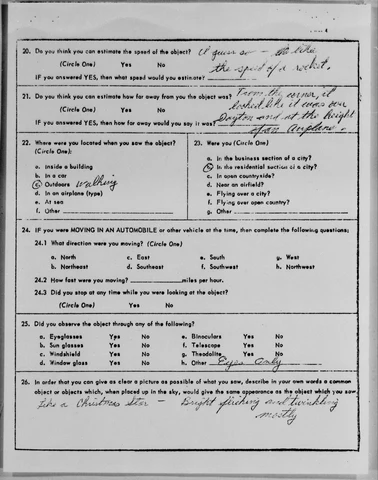 20. Do you think you can estimate the speed of the object? I guess so — like
(Circle One) Yes No the speed of a rocket.
IF you answered YES, then what speed would you estimate?
21. Do you think you can estimate how far away from you the object was? From the corner, it
(Circle One) Yes No looked like it was over
IF you answered YES, then how far away would you say it was? Dayton and at the height
of an airplane.
22. Where were you located when you saw the object?
(Circle One):
a. Inside a building
b. In a car
c. Outdoors walking
d. In an airplane (type)
e. At sea
f. Other
23. Were you (Circle One)
a. In the business section of a city?
b. In the residential section of a city?
c. In open countryside?
d. Near an airfield?
e. Flying over a city?
f. Flying over open country?
g. Other
24. IF you were MOVING IN AN AUTOMOBILE or other vehicle at the time, then complete the following questions:
24.1 What direction were you moving? (Circle One)
a. North c. East e. South g. West
b. Northeast d. Southeast f. Southwest h. Northwest
24.2 How fast were you moving? miles per hour.
24.3 Did you stop at any time while you were looking at the object?
(Circle One) Yes No
25. Did you observe the object through any of the following?
a. Eyeglasses Yes No e. Binoculars Yes No
b. Sun glasses Yes No f. Telescope Yes No
c. Windshield Yes No g. Theodolite Yes No
d. Window glass Yes No h. Other Eyes Only
26. In order that you can give as clear a picture as possible of what you saw, describe in your own words a common
object or objects which, when placed up in the sky, would give the same appearance as the object which you saw.
Like a Christmas Star — Bright flicking and twinkling
mostly